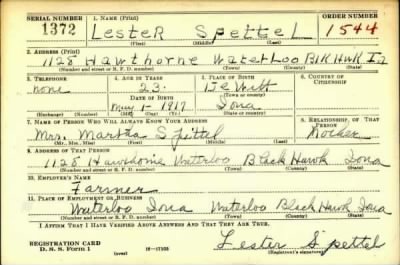 SERIAL NUMBER 1. NAME (Print) ORDER NUMBER
1372 LESTER SPETTEL 1544
(First) (Middle) (Last)
2. ADDRESS (Print)
1128 HAWTHORNE WATERLOO BlK HWK Ia
(Number and street or R. F. D. number) (Town) (County) (State)
3. TELEPHONE 4. AGE IN YEARS 5. PLACE OF BIRTH 6. COUNTRY OF CITIZENSHIP
none 23 De Witt
DATE OF BIRTH (Town or county)
May 1- 1917 Iowa
(Exchange) (Number) (Mo.) (Day) (Yr.) (State or country)
7. NAME OF PERSON WHO WILL ALWAYS KNOW YOUR ADDRESS 8. RELATIONSHIP OF THAT PERSON
Mrs. Martha Spettel Mother
(Mr., Mrs., Miss) (First) (Middle) (Last)
9. ADDRESS OF THAT PERSON
1128 Hawthorne Waterloo Black Hawk Iowa
(Number and street or R. F. D. number) (Town) (County) (State)
10. EMPLOYER'S NAME
Farmer
11. PLACE OF EMPLOYMENT OR BUSINESS
Waterloo Iowa Waterloo Black Hawk Iowa
(Number and street or R. F. D. number) (Town) (County) (State)
I AFFIRM THAT I HAVE VERIFIED ABOVE ANSWERS AND THAT THEY ARE TRUE.
REGISTRATION CARD
D. S. S. Form 1 (over) Lester Spettel
(Registrant's signature)